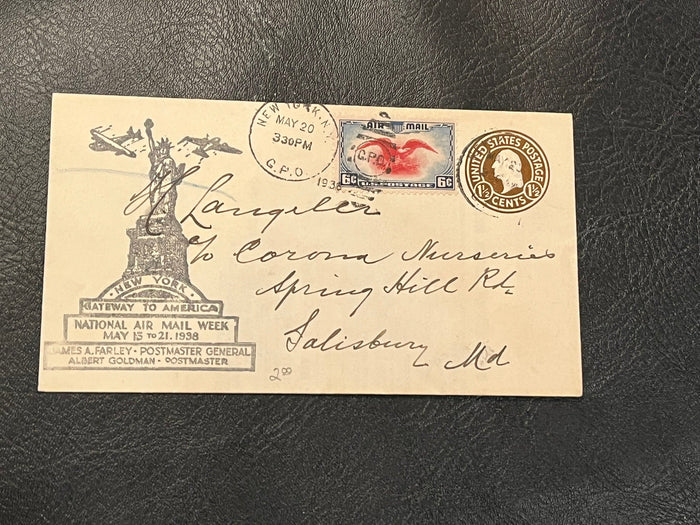 NEW YORK, N.Y.
MAY 20
330 PM
1938
G.P.O.
AIR MAIL
G.P.O.
6¢ U.S. POSTAGE 6¢
UNITED STATES POSTAGE
1½ 1½
CENTS
Langeler
c/o Corona Nurseries
Spring Hill Rd.
Salisbury Md
· NEW YORK ·
GATEWAY TO AMERICA
NATIONAL AIR MAIL WEEK
MAY 15 TO 21. 1938
JAMES A. FARLEY · POSTMASTER GENERAL
ALBERT GOLDMAN · POSTMASTER
2.00